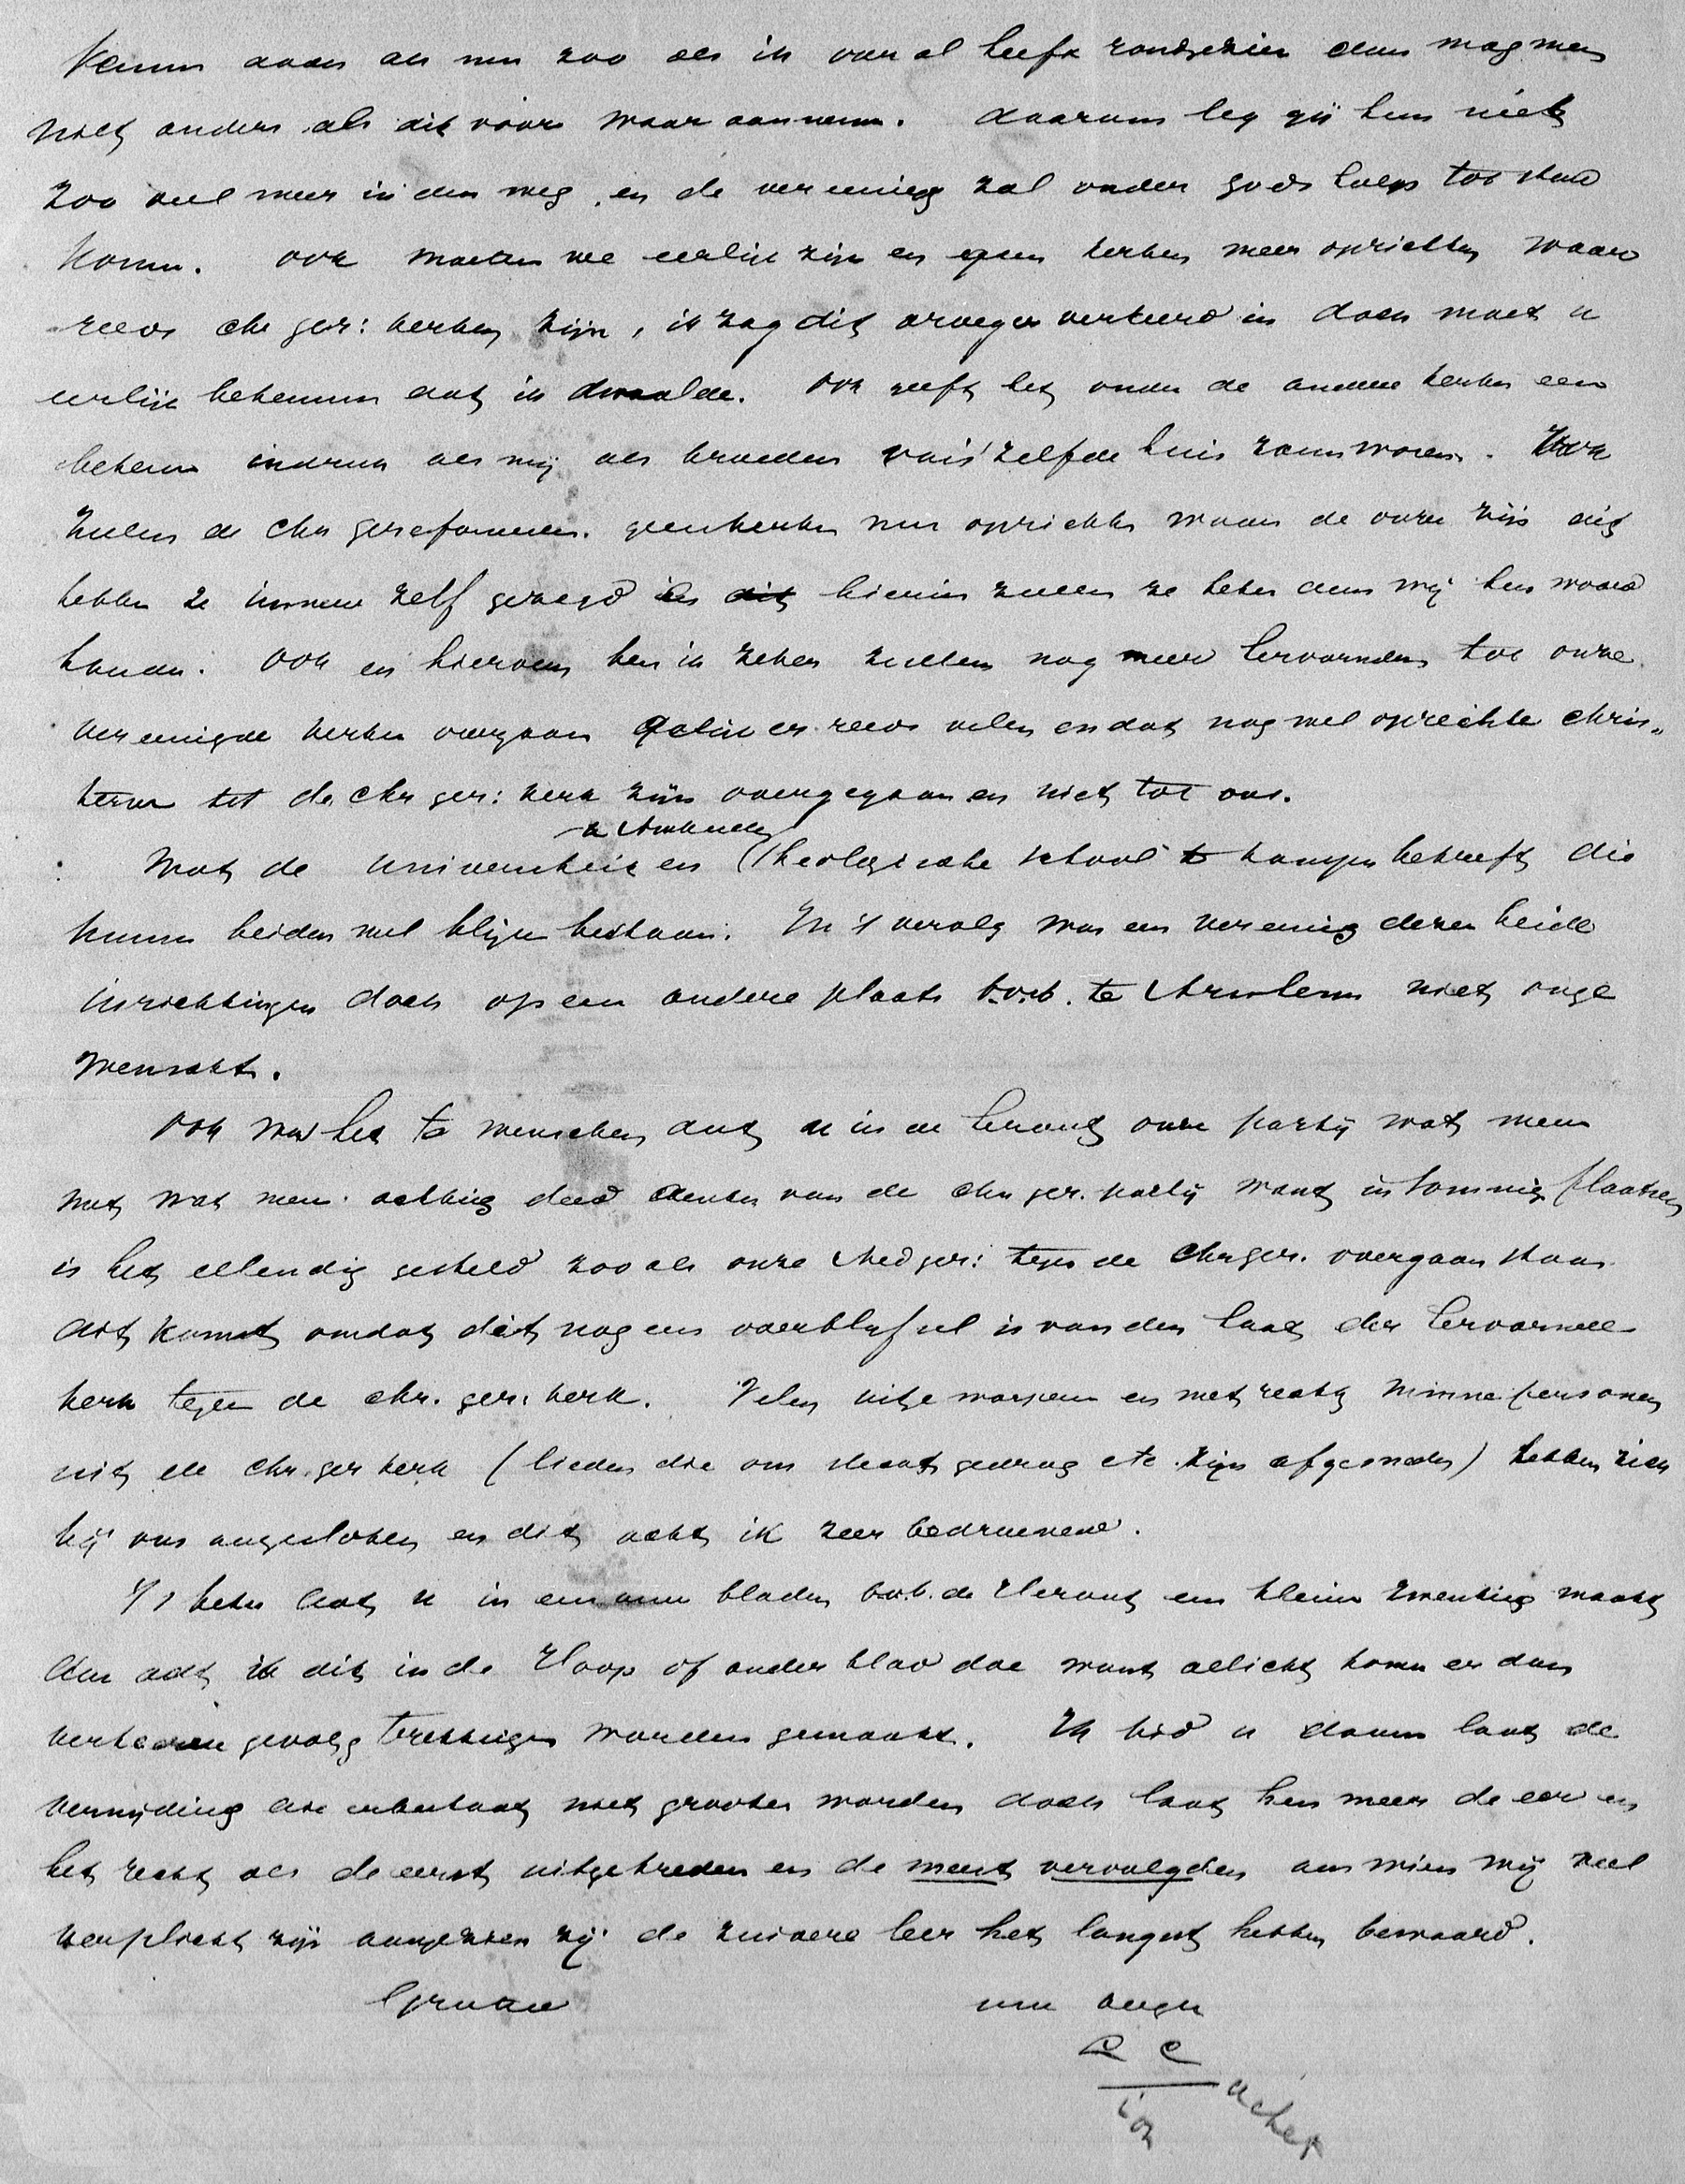 kennen daar als men zoo als ik overal heeft rondgezien dan mag men
niets anders als dit voor waar aannemen. daarom leg gij hun niets
zoo veel meer in den weg, en de vereeniging zal onder gods hulp tot stand
komen. ook moeten we eerlijk zijn en geen kerken meer oprichten waar
reeds chr ger: kerken zijn, ik zag dit vroeger verkeerd in doch moet u
eerlijk bekennen dat ik dwaalde. Ook geeft het onder de andere kerken een
beteren indruk als wij als broeders van 't zelfde huis samenwonen. Ook
zullen de chr gereformeerden geen kerken meer oprichten waar de onze zijn dit
hebben ze immers zelf gezegd en hierin zullen ze beter dan wij hun woord
houden. Ook en hiervan ben ik zeker zullen nog meer hervormden tot onze
vereenigde kerken overgaan gelijk er reeds velen en dat nog wel oprechte chris„
tenen tot de chr ger: kerk zijn overgegaan en niet tot ons.
te Amsterdam
Wat de universiteit en (Theologische school te kampen betreft die
kunnen beiden wel blijven bestaan. In 't vervolg was een vereeniging dezer beide
inrichtingen doch op een andere plaats b.v.b. te Arnhem niet onge
wenscht.
Ook was het te wenschen dat u in de heraut onze partij wat meer
met wat meer achting deed denken van de chr ger. partij want in sommige plaatsen
is het ellendig gesteld zooals onze Ned ger: tegen de Chr ger. overgaan staan
dit komt omdat dit nog een overblijfsel is van den haat der hervormde
kerk tegen de chr. ger: kerk. Velen uitgeworpen en met recht personen
uit de chr. ger kerk (lieden die om slecht gedrag etc zijn afgesneden) hebben zich
bij ons aangesloten en dit acht ik zeer bedroevend.
't Is beter dat u in een uwer bladen b.v.b. de Heraut een kleine zwenking maakt
dan dat ik dit in de Hoop of ander blad doe want allicht konden er dan
verkeerde gevolgtrekkingen worden gemaakt. Ik bid u daarom laat de
verwijdering die er bestaat niet grooter worden doch laat hun meer de eer en
het recht als de eerst uitgetreden en de meest vervolgden aan wien wij veel
verplicht zijn aangezien zij de zuivere leer het langst hebben bewaard.
uw